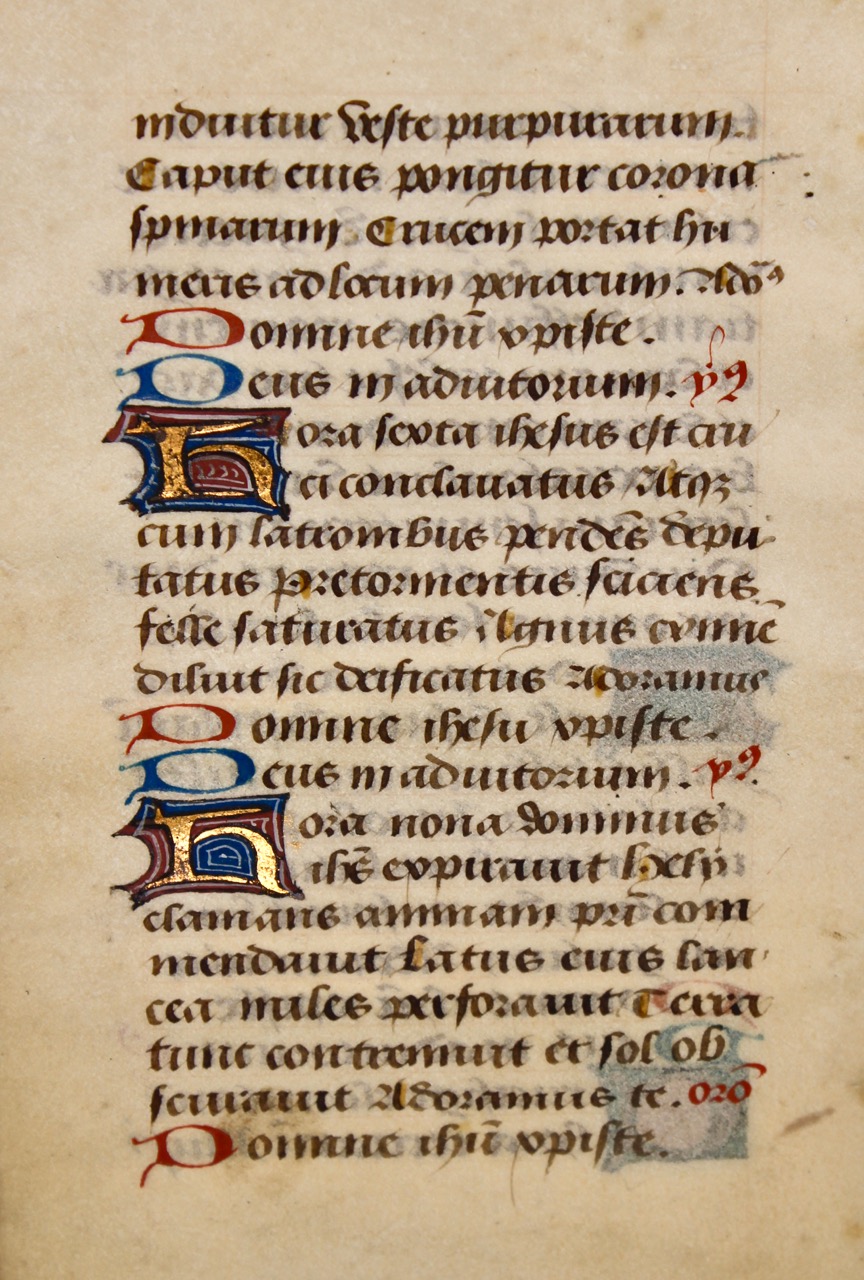 induitur veste purpurarum.
Caput eius pongitur corona
spinarum Crucem portat hu
meris ad locum penarum. Adoꝰ
Domine ihū xpiste.
Deus in adiutorium. yꝰ
Hora sexta ihesus est cru
ci conclavatus Atqꝫ
cum latronibus pendēs depu
tatus Pretormentis sciciens
felle saturatus Agnus crimē
diluit sic deificatus Adoramus
Domine ihesu xpiste.
Deus in adiutorium. yꝰ.
Hora nona dominus
ihs̄ expirauit hely
clamans animam pr̄i com
mendauit Latus eius lan
cea miles perforauit Terra
tunc contremuit et sol ob
scurauit Adoramus te. orō
Domine ihū xpiste.